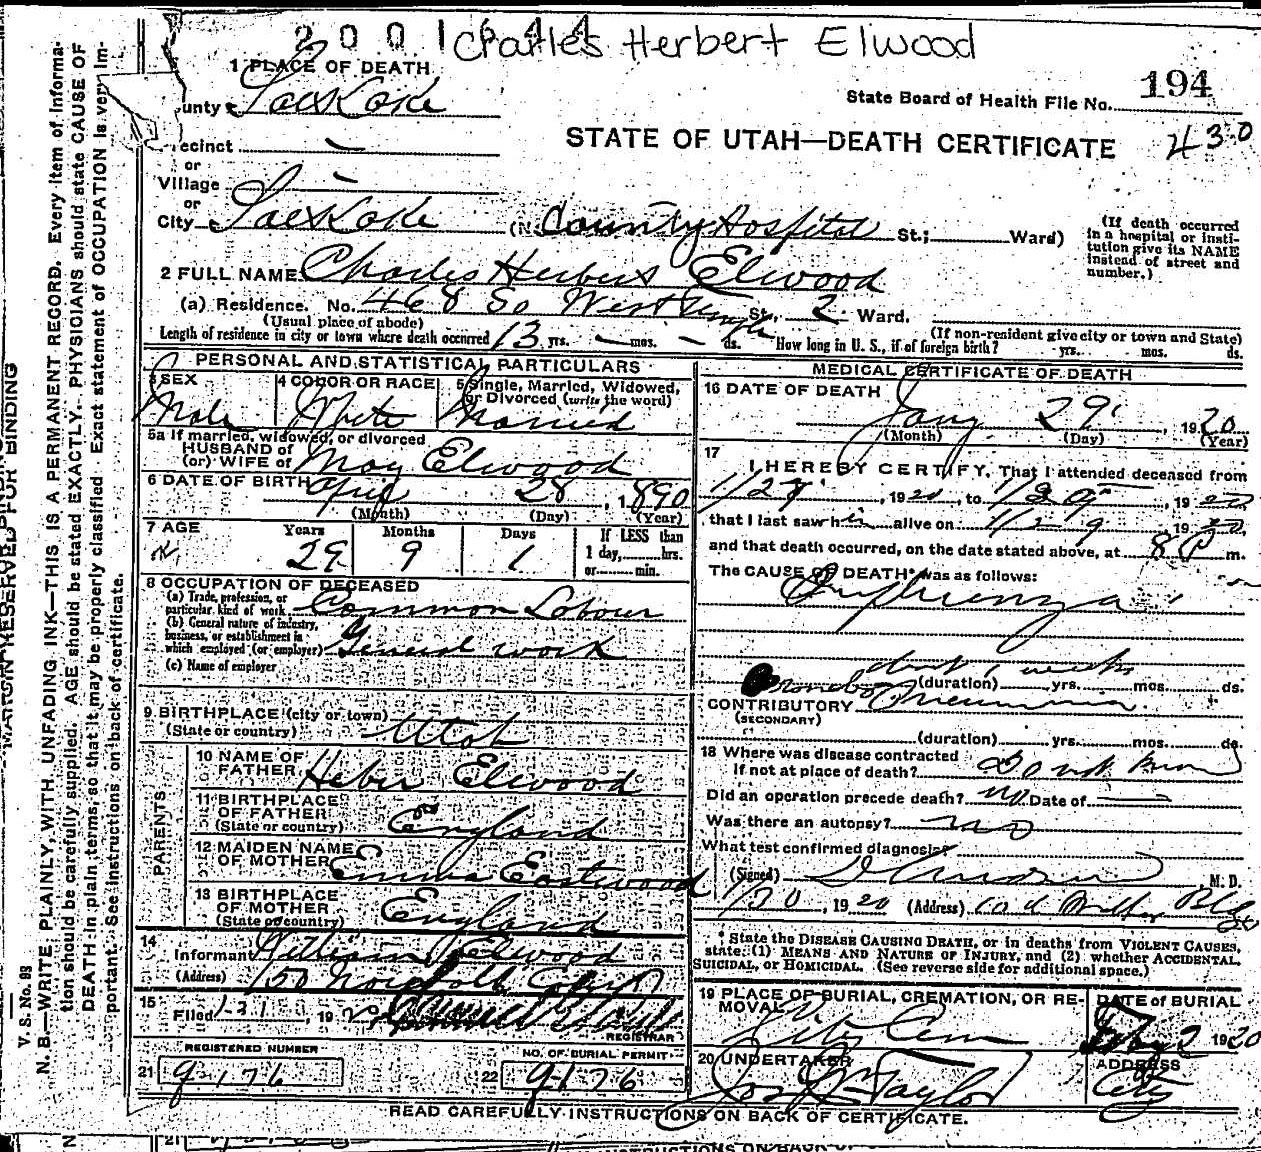 2001644 Charles Herbert Elwood
1 PLACE OF DEATH
unty Salt Lake
State Board of Health File No. 194
430
STATE OF UTAH—DEATH CERTIFICATE
recinct —
or
Village —
or
City Salt Lake (No. County Hospital St.; Ward)
(If death occurred in a hospital or insti-
tution give its NAME instead of street and number.)
2 FULL NAME Charles Herbert Elwood
(a) Residence. No. 468 So West Temple St., 2 Ward.
(Usual place of abode)
(If non-resident give city or town and State)
Length of residence in city or town where death occurred 13 yrs. — mos. — ds. How long in U. S., if of foreign birth? yrs. mos. ds.
PERSONAL AND STATISTICAL PARTICULARS
3 SEX
Male
4 COLOR OR RACE
White
5 Single, Married, Widowed,
or Divorced (write the word)
Married
5a If married, widowed, or divorced
HUSBAND of
(or) WIFE of May Elwood
6 DATE OF BIRTH April 28, 1890
(Month) (Day) (Year)
7 AGE
Years Months Days
29 9 1
If LESS than
1 day, hrs.
or min.
8 OCCUPATION OF DECEASED
(a) Trade, profession, or
particular kind of work Common Labour
(b) General nature of industry,
business, or establishment in
which employed (or employer) General work
(c) Name of employer
9 BIRTHPLACE (city or town)
(State or country) Utah
PARENTS
10 NAME OF
FATHER Heber Elwood
11 BIRTHPLACE
OF FATHER
(State or country) England
12 MAIDEN NAME
OF MOTHER Emma Eastwood
13 BIRTHPLACE
OF MOTHER
(State or country) England
14
Informant William Elwood
(Address) 150
15
Filed 19
REGISTRAR
REGISTERED NUMBER
21 9176
NO. OF BURIAL PERMIT
22 9176
MEDICAL CERTIFICATE OF DEATH
16 DATE OF DEATH
Jany 29, 1920
(Month) (Day) (Year)
17
I HEREBY CERTIFY, That I attended deceased from
1920, to 1/29, 1920
that I last saw him alive on 1/29, 1920,
and that death occurred, on the date stated above, at 8 P m.
The CAUSE OF DEATH* was as follows:
Influenza
weeks
(duration) yrs. mos. ds.
CONTRIBUTORY Broncho Pneumonia
(SECONDARY)
(duration) yrs. mos. ds.
18 Where was disease contracted
If not at place of death? Don't know
Did an operation precede death? no Date of —
Was there an autopsy? no
What test confirmed diagnosis?
(Signed) M. D.
1/30, 1920 (Address)
* State the DISEASE CAUSING DEATH, or in deaths from VIOLENT CAUSES,
state (1) MEANS AND NATURE OF INJURY, and (2) whether ACCIDENTAL,
SUICIDAL, or HOMICIDAL. (See reverse side for additional space.)
19 PLACE OF BURIAL, CREMATION, OR RE-
MOVAL
City Cem
DATE of BURIAL
2 1920
20 UNDERTAKER
Jos Taylor
ADDRESS
City
READ CAREFULLY INSTRUCTIONS ON BACK OF CERTIFICATE.
MARGIN RESERVED FOR BINDING
V. S. No. 93
N. B.—WRITE PLAINLY, WITH UNFADING INK—THIS IS A PERMANENT RECORD. Every item of informa-
tion should be carefully supplied. AGE should be stated EXACTLY. PHYSICIANS should state CAUSE OF
DEATH in plain terms, so that it may be properly classified. Exact statement of OCCUPATION is very im-
portant. See instructions on back of certificate.